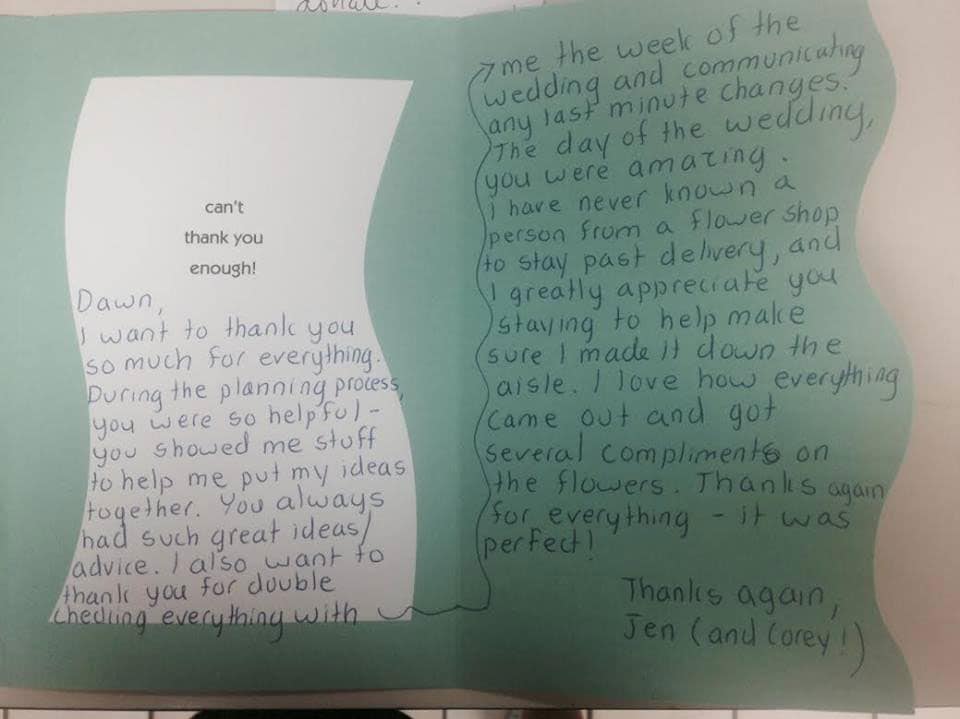 can't
thank you
enough!
Dawn,
I want to thank you
so much for everything.
During the planning process,
you were so helpful -
you showed me stuff
to help me put my ideas
together. You always
had such great ideas/
advice. I also want to
thank you for double
checking everything with
me the week of the
wedding and communicating
any last minute changes.
The day of the wedding,
you were amazing.
I have never known a
person from a flower shop
to stay past delivery, and
I greatly appreciate you
staying to help make
sure I made it down the
aisle. I love how everything
came out and got
several compliments on
the flowers. Thanks again
for everything - it was
perfect!
Thanks again,
Jen (and Corey!)